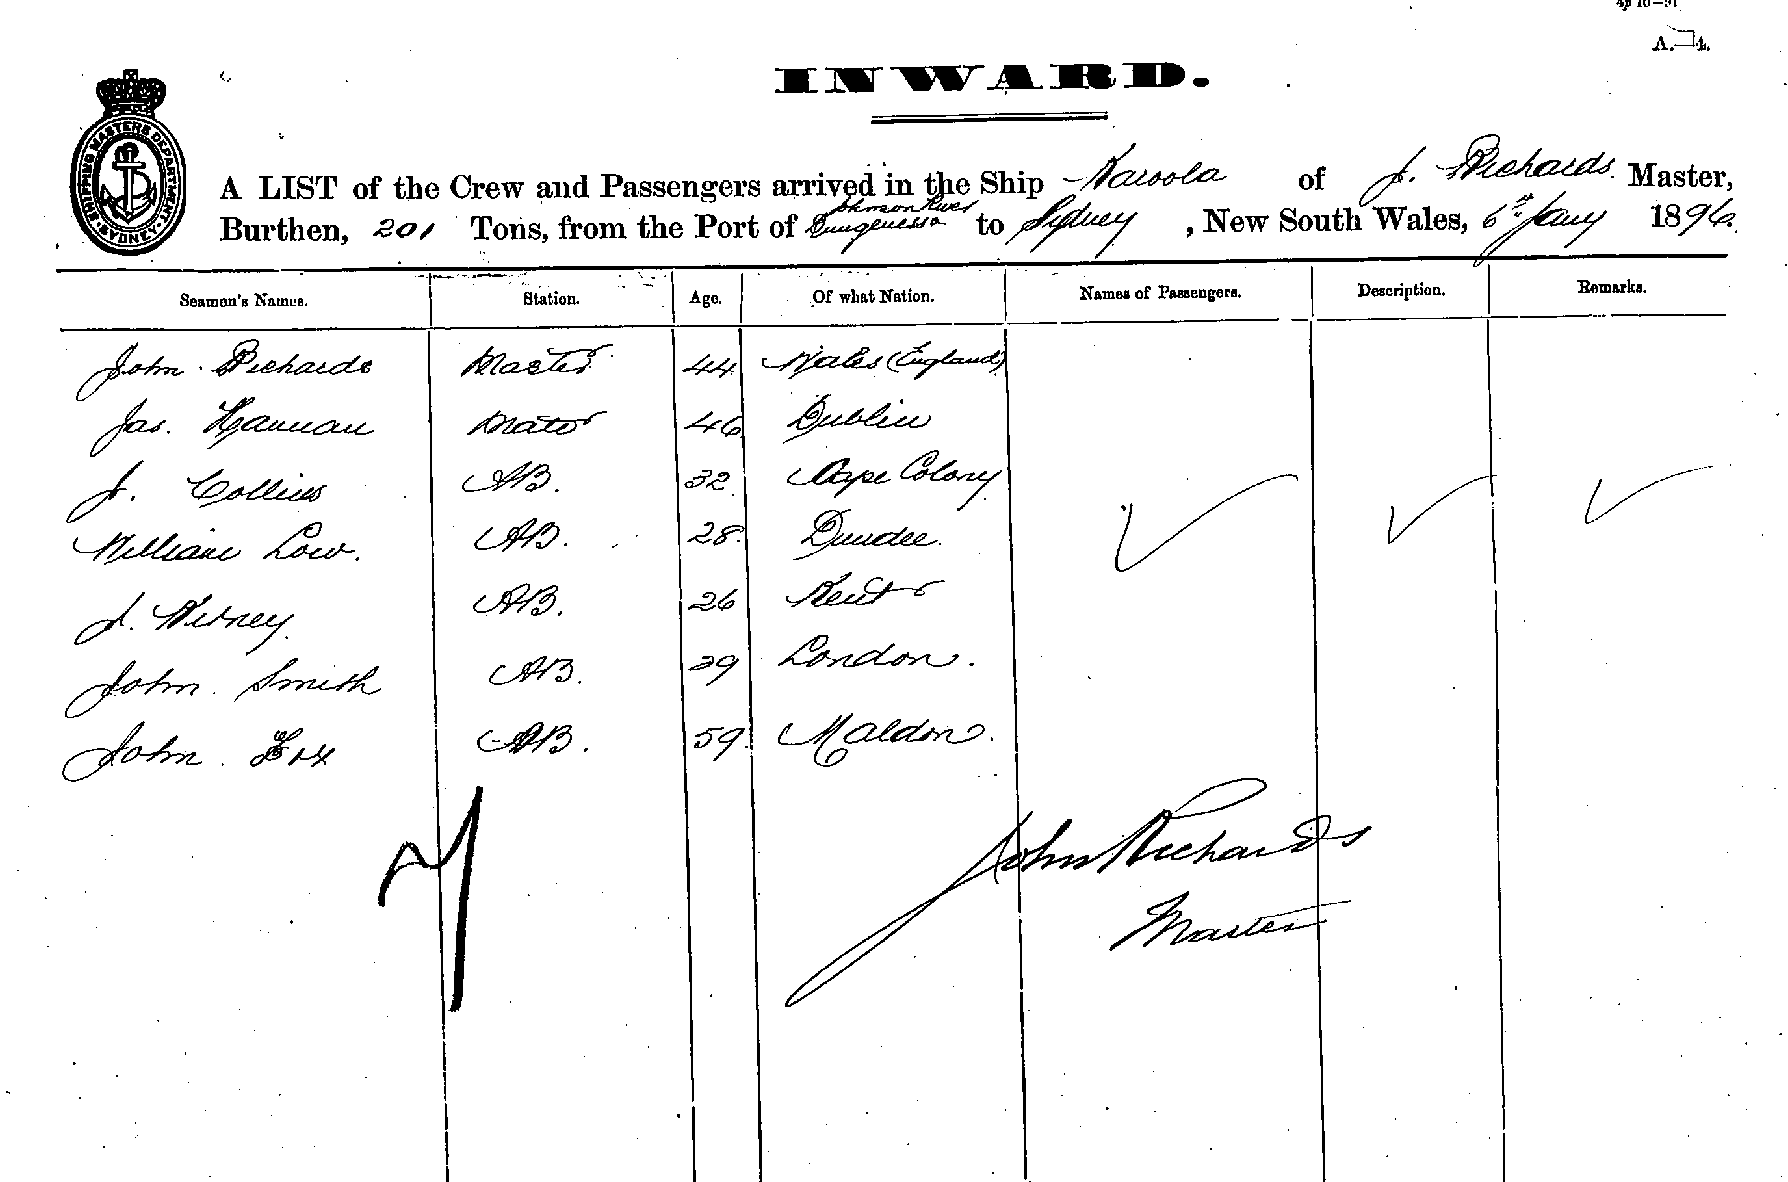 A. 4.
INWARD.
SHIPPING MASTERS DEPARTMENT SYDNEY
A LIST of the Crew and Passengers arrived in the Ship Karoola of J. Richards. Master,
Johnson River
Burthen, 201 Tons, from the Port of Dungenesso to Sydney, New South Wales, 6th Jany 1896.
Seamen's Names. Station. Age. Of what Nation. Names of Passengers. Description. Remarks.
John Richards Master 44 Wales (England)
Jas. Hannan Mate 46 Dublin
J. Collins AB. 32 Cape Colony
William Low. AB. 28 Dundee.
AB. 26 Kent
John Smith AB. London.
John Fox AB. 59 Maldon.
7
John Richards
Master